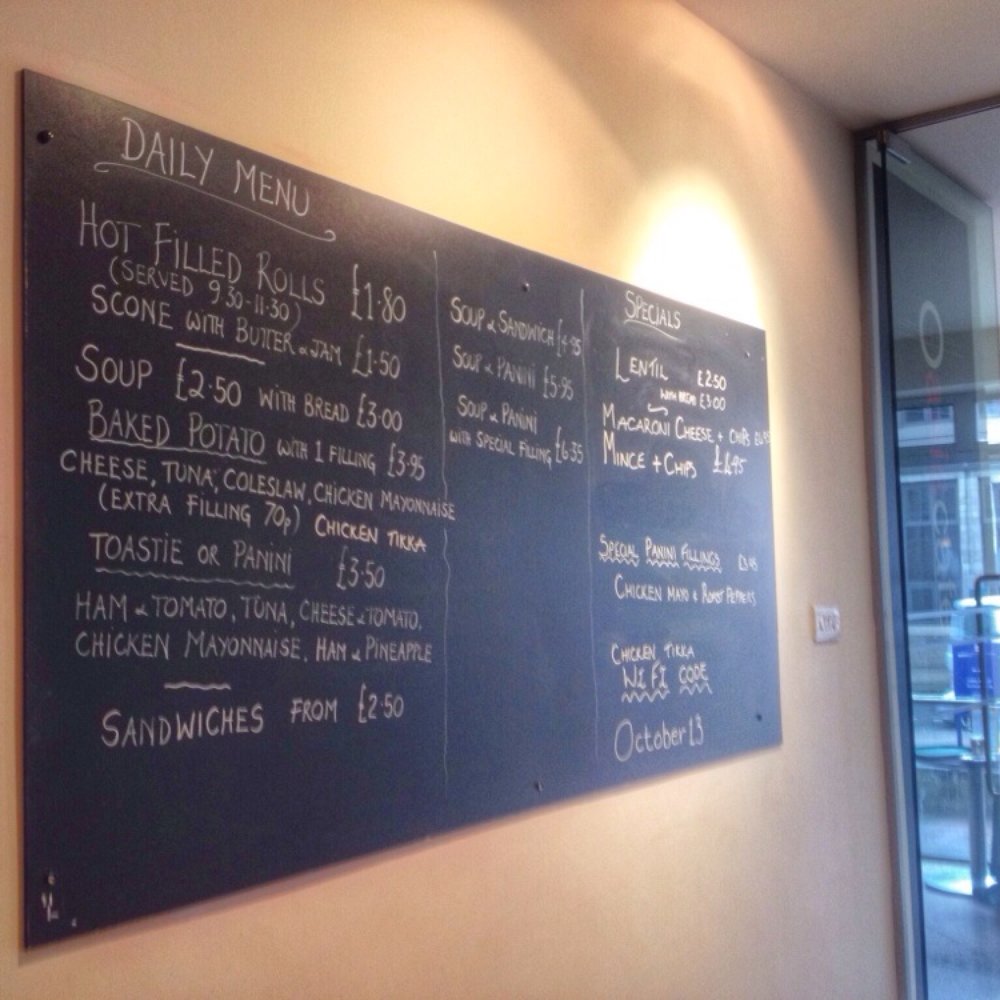 DAILY MENU
HOT FILLED ROLLS £1.80
(SERVED 9.30-11.30)
SCONE WITH BUTTER & JAM £1.50
SOUP £2.50 WITH BREAD £3.00
BAKED POTATO WITH 1 FILLING £3.95
CHEESE, TUNA, COLESLAW, CHICKEN MAYONNAISE
(EXTRA FILLING 70p) CHICKEN TIKKA
TOASTIE OR PANINI £3.50
HAM & TOMATO, TUNA, CHEESE & TOMATO,
CHICKEN MAYONNAISE, HAM & PINEAPPLE
SANDWICHES FROM £2.50
SOUP & SANDWICH £4.95
SOUP & PANINI £5.95
SOUP & PANINI
WITH SPECIAL FILLING £6.35
SPECIALS
LENTIL £2.50
WITH BREAD £3.00
MACARONI CHEESE + CHIPS
MINCE + CHIPS
SPECIAL PANINI FILLINGS
CHICKEN MAYO & ROAST PEPPERS
CHICKEN TIKKA
WIFI CODE
October13